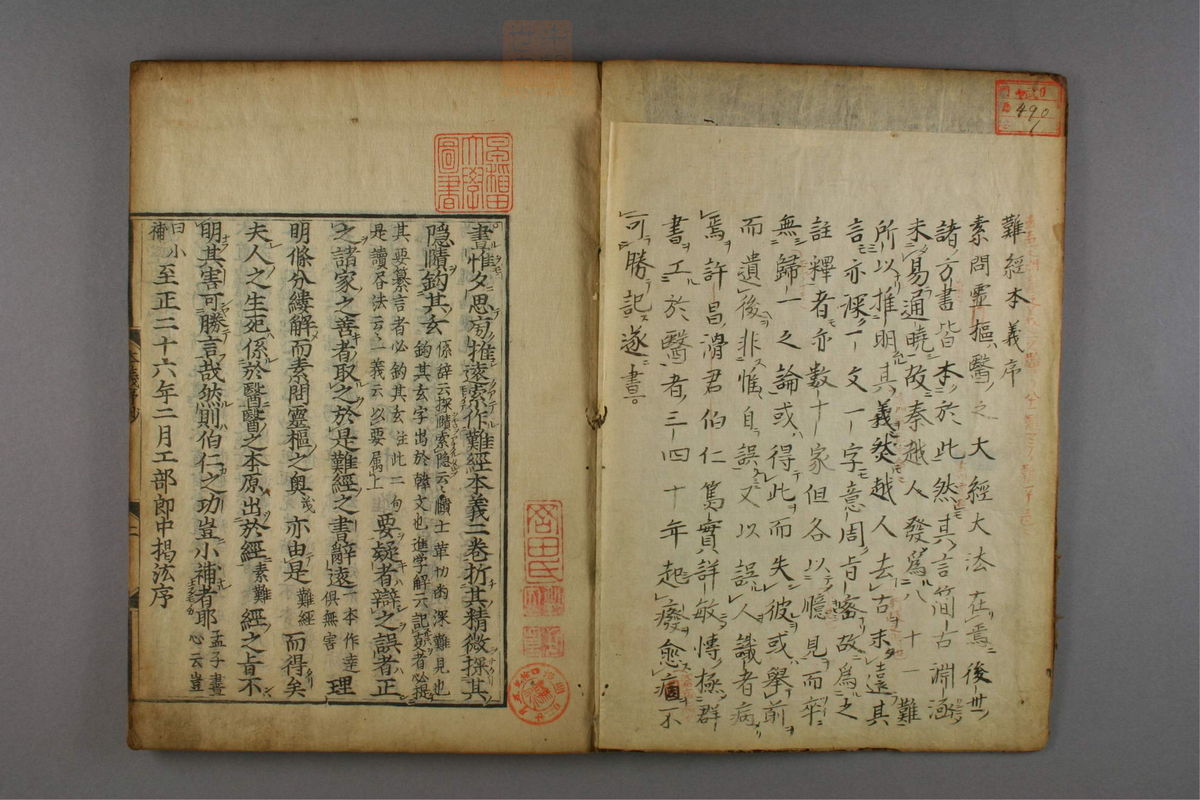 難經本義序
素問靈樞醫之大經大法在焉後世
諸方書皆本於此然其言簡古淵涵
未易通曉故秦越人發爲八十一難
所以推明其義然越人去古未遠其
言亦深一文一字意周旨密故爲之
註釋者亦數十家但各以臆見而卒
無歸一之論或得此而失彼或舉前
而遺後非惟自誤又以誤人識者病
焉許昌滑君伯仁篤實詳敏博極群
書工於醫者三四十年起廢愈痼不
可勝記遂晝
晝惟夕思旁推遠索作難經本義二卷折其精微探其
隱賾鈎其玄
係辭云探賾索隱云賾士革切幽深難見也
鈎其玄字出於韓文也進学解云記事者必提
其要纂言者必鈎其玄注此二句
是讀各法云上義云以要屬上
要疑者辯之誤者正
之諸家之善者取之於是難經之書辭遠
一本作幸
俱無害
理
明條分縷解而素問靈樞之奧亦由是
難經
而得矣
夫人之生死係於醫醫之本原出於經
素難
經之旨不
明其害可勝言哉然則伯仁之功豈小補者耶
孟子盡
心云豈
曰小
補
至正二十六年二月工部郎中揭汯序
早稻田
大學
圖書
490